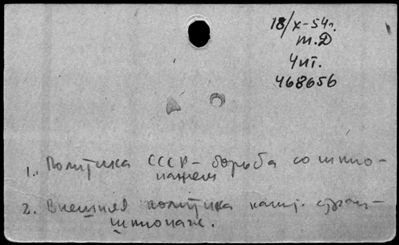 18/X-54г.
т.Д
Чит.
468656
1. Политика СССР - борьба со шпио-
нажем
2. Внешняя политика кап. стран -
шпионаж.